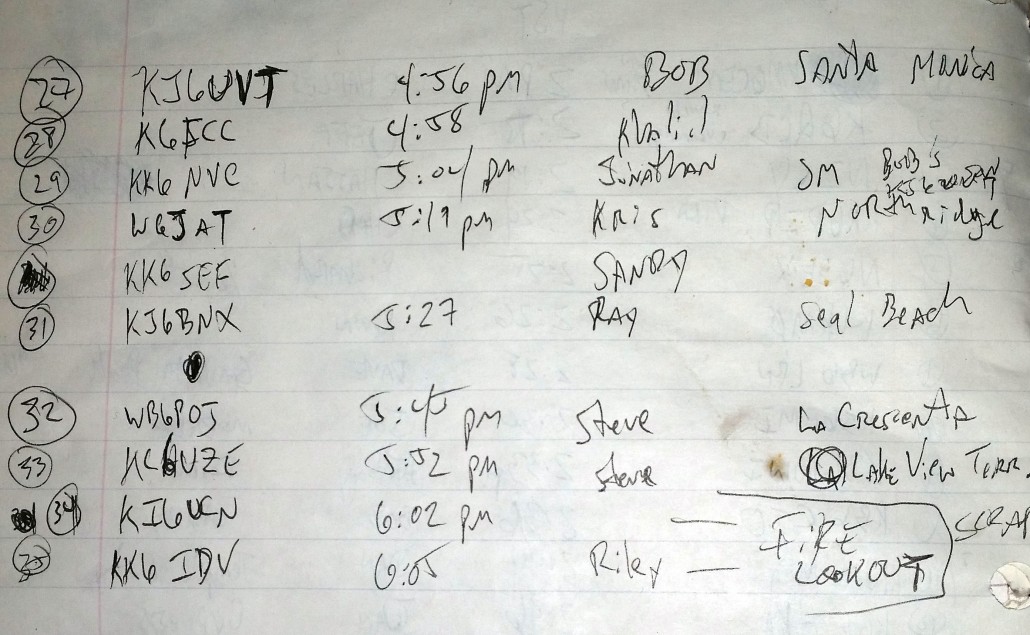 27 KJ6UVJ 4:56 pm BOB SANTA MONICA
28 KG6FCC 4:58 Khalid
29 KK6NVC 5:04 pm Jonathan SM BOB'S
30 W6JAT 5:19 pm Kris Northridge
KK6SEF SANDY
31 KJ6BNX 5:27 RAY Seal Beach
32 WB6POJ 5:45 pm Steve La Crescenta
33 5:52 pm Steve Lake View Terr.
34 KI6UCN 6:02 pm — FIRE SCRAP
35 KK6IDV 6:05 Riley — LOOKOUT